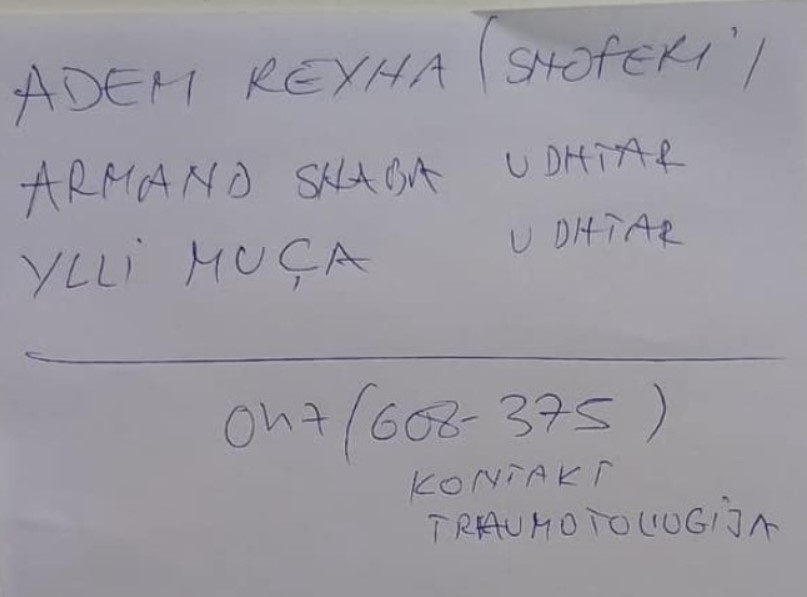 ADEM REXHA (SHOFERI)
ARMAND SHABA UDHTAR
YLLI MUÇA UDHTAR
047/608-375)
KONTAKT
TRAUMOTOLOGIJA